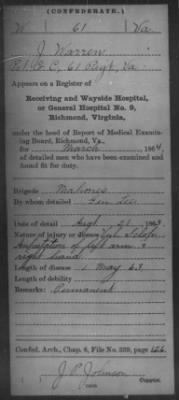 (CONFEDERATE.)
W 61 Va.
J. Warren
Co. C, 61 Regt. Va.
Appears on a Register of
Receiving and Wayside Hospital,
or General Hospital No. 9,
Richmond, Virginia,
under the head of Report of Medical Examin-
ing Board, Richmond, Va.,
for March 1864
of detailed men who have been examined and
found fit for duty.
Brigade Mahones
By whom detailed Gen Lee
Date of detail 21 1863
Nature of injury or disease
Amputation of left arm &
right hand
Length of disease 1 May 63
Length of debility
Remarks: Permanent
Confed. Arch., Chap. 6, File No. 239, page 126
J. P. Johnson
Copyist.